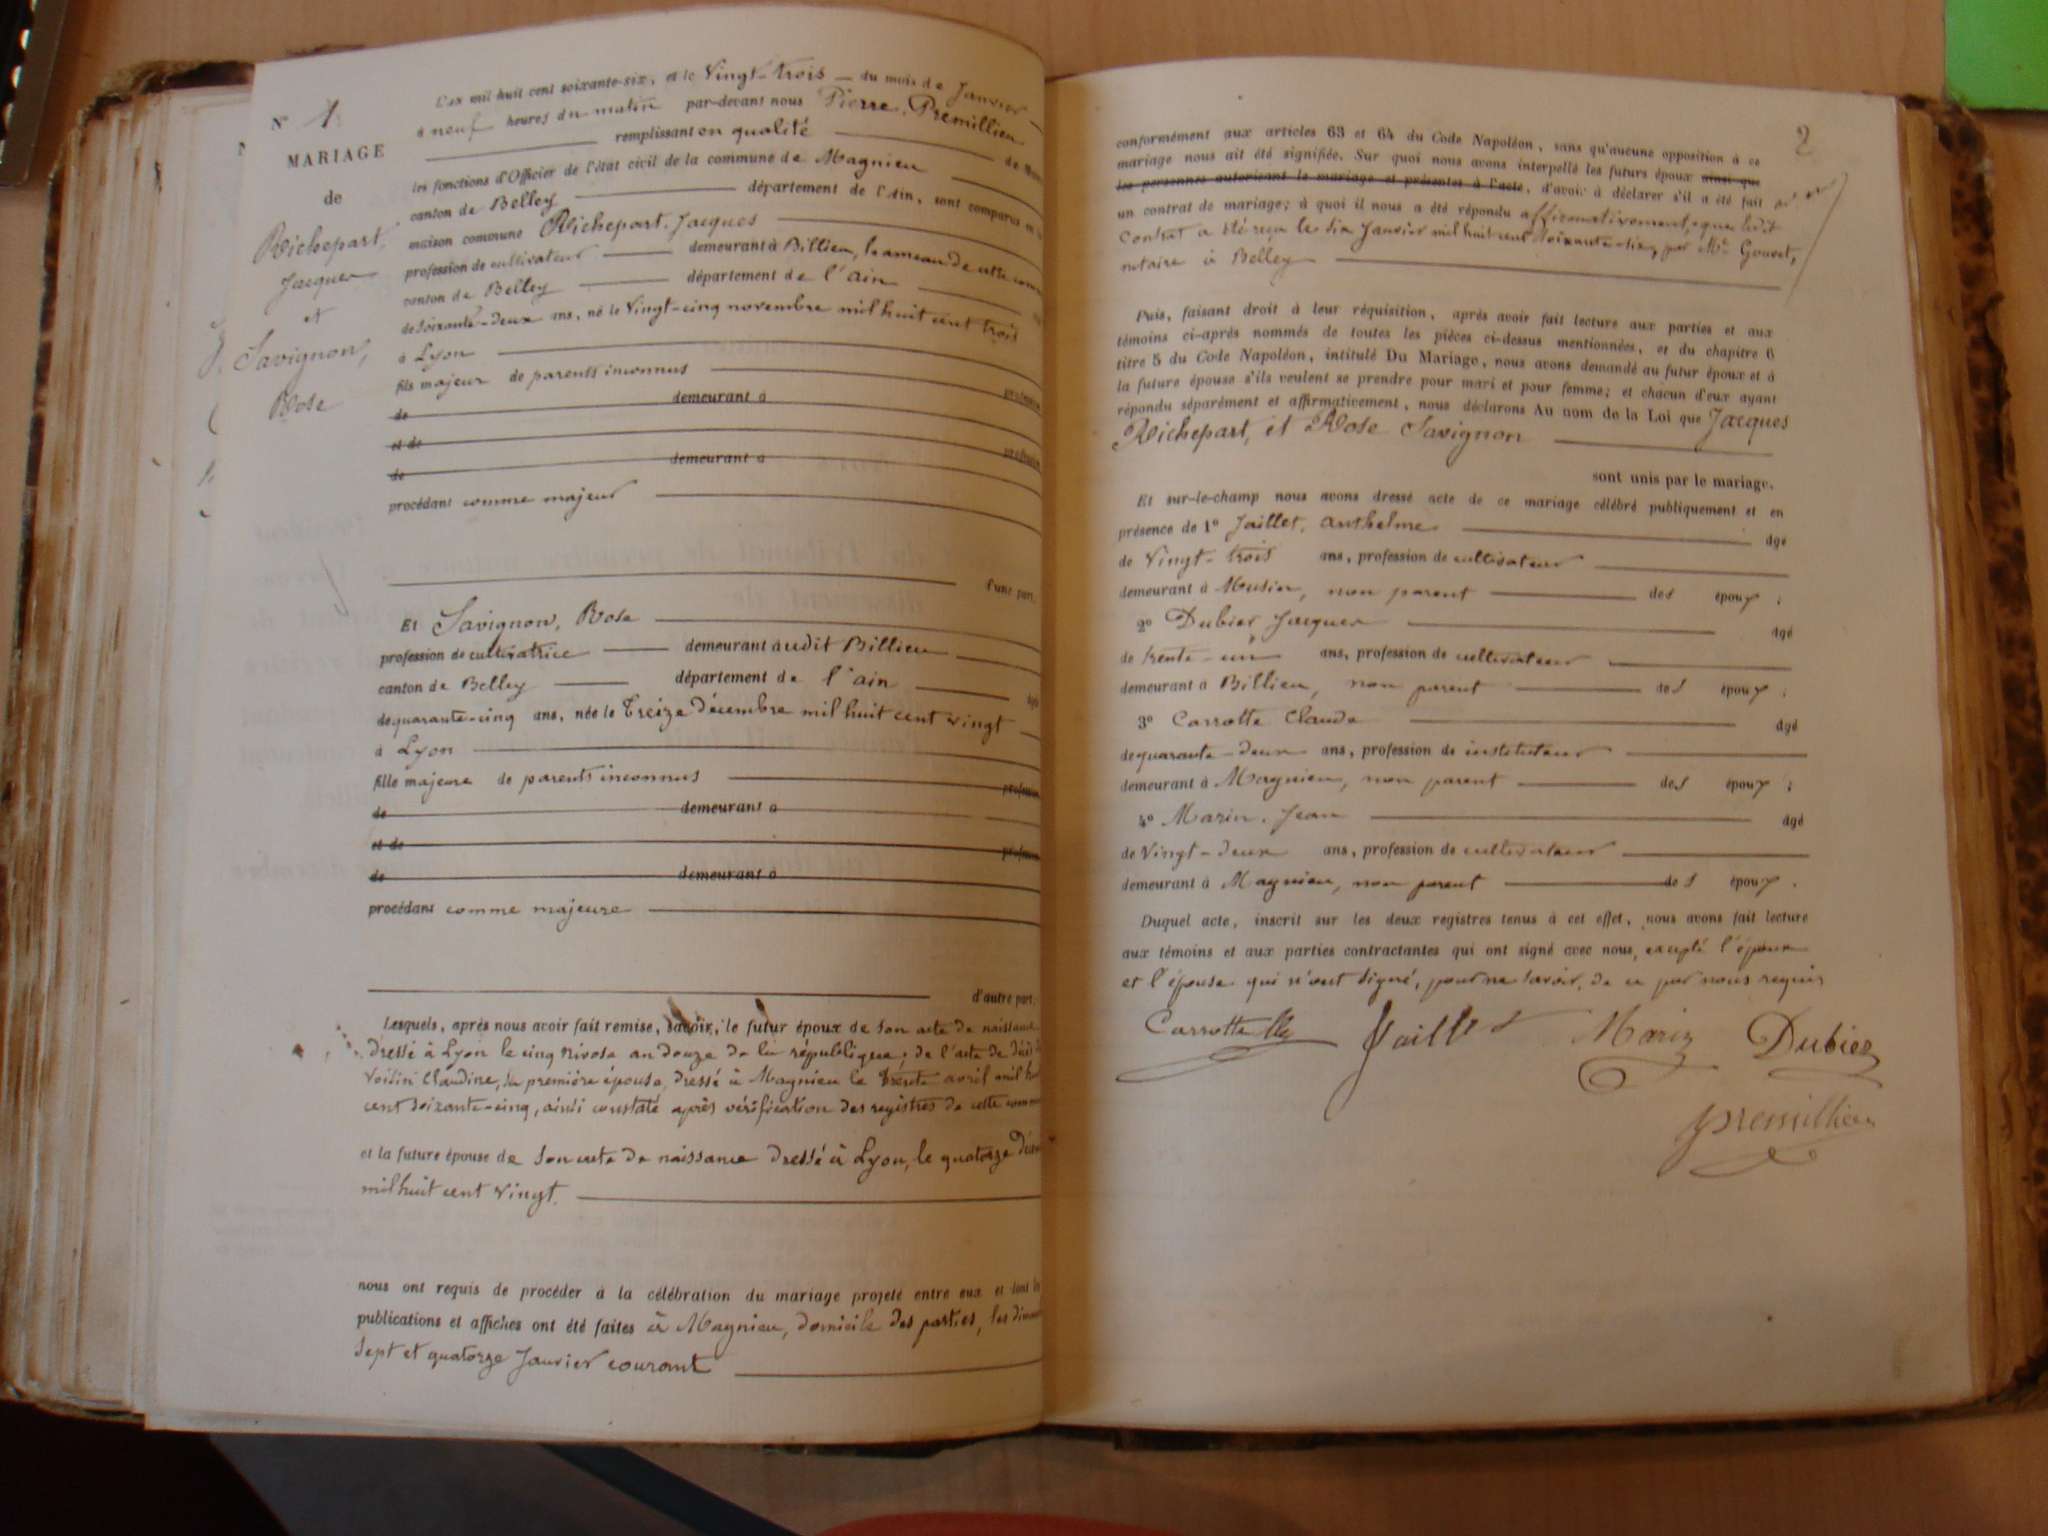 N° 1
MARIAGE
de
Richepart
Jacques
et
Savignon,
Rose
L'an mil huit cent soixante-six, et le Vingt-trois du mois de Janvier
à neuf heures du matin par-devant nous Pierre Premillieu
remplissant en qualité de
les fonctions d'Officier de l'état civil de la commune de Magnieu
canton de Belley département de l'Ain, sont comparus en la
maison commune Richepart Jacques
profession de cultivateur demeurant à Billieu, hameau de cette
canton de Belley département de l'ain
de soixante-deux ans, né le Vingt-cinq novembre mil huit cent trois
à Lyon
fils majeur de parents inconnus
de demeurant à
et de
de demeurant à
procédant comme majeur
d'une part,
Et Savignon, Rose
profession de cultivatrice demeurant audit Billieu
canton de Belley département de l'ain
de quarante-cinq ans, née le Treize Décembre mil huit cent vingt
à Lyon
fille majeure de parents inconnus
de demeurant à
et de
de demeurant à
procédant comme majeure
d'autre part,
Lesquels, après nous avoir fait remise, savoir, le futur époux de son acte de naissance
dressé à Lyon le cinq nivose an douze de la république; de l'acte de décès de
Voisin Claudine, sa première épouse, dressé à Magnieu le trente avril mil huit
cent soixante-cinq, ainsi constaté après vérification des registres de cette
et la future épouse de son acte de naissance dressé à Lyon, le quatorze
mil huit cent vingt.
nous ont requis de procéder à la célébration du mariage projeté entre eux et dont les
publications et affiches ont été faites à Magnieu, domicile des parties, les
sept et quatorze Janvier courant
2
conformément aux articles 63 et 64 du Code Napoléon, sans qu'aucune opposition à ce
mariage nous ait été signifiée. Sur quoi nous avons interpellé les futurs époux ainsi que
les personnes autorisant le mariage et présentes à l'acte, d'avoir à déclarer s'il a été fait
un contrat de mariage; à quoi il nous a été répondu affirmativement, que ledit
contrat a été reçu le dix Janvier mil huit cent soixante-six, par Me Gouvet,
notaire à Belley
Puis, faisant droit à leur réquisition, après avoir fait lecture aux parties et aux
témoins ci-après nommés de toutes les pièces ci-dessus mentionnées, et du chapitre 6
titre 5 du Code Napoléon, intitulé Du Mariage, nous avons demandé au futur époux et à
la future épouse s'ils veulent se prendre pour mari et pour femme; et chacun d'eux ayant
répondu séparément et affirmativement, nous déclarons Au nom de la Loi que Jacques
Richepart, et Rose Savignon
sont unis par le mariage.
Et sur-le-champ nous avons dressé acte de ce mariage célébré publiquement et en
présence de 1° Jaillet, anthelme âgé
de Vingt-trois ans, profession de cultivateur
demeurant à Musin, non parent des époux ;
2° Dubiez Jacques âgé
de trente-un ans, profession de cultivateur
demeurant à Billieu, non parent des époux ;
3° Carrotte Claude âgé
de quarante-deux ans, profession de instituteur
demeurant à Magnieu, non parent des époux ;
4° Marin, Jean âgé
de Vingt-deux ans, profession de cultivateur
demeurant à Magnieu, non parent des époux.
Duquel acte, inscrit sur les deux registres tenus à cet effet, nous avons fait lecture
aux témoins et aux parties contractantes qui ont signé avec nous, excepté l'époux
et l'épouse qui n'ont signé, pour ne savoir, de ce par nous requis
Carrotte Jaillet Marin Dubiez
premillieu